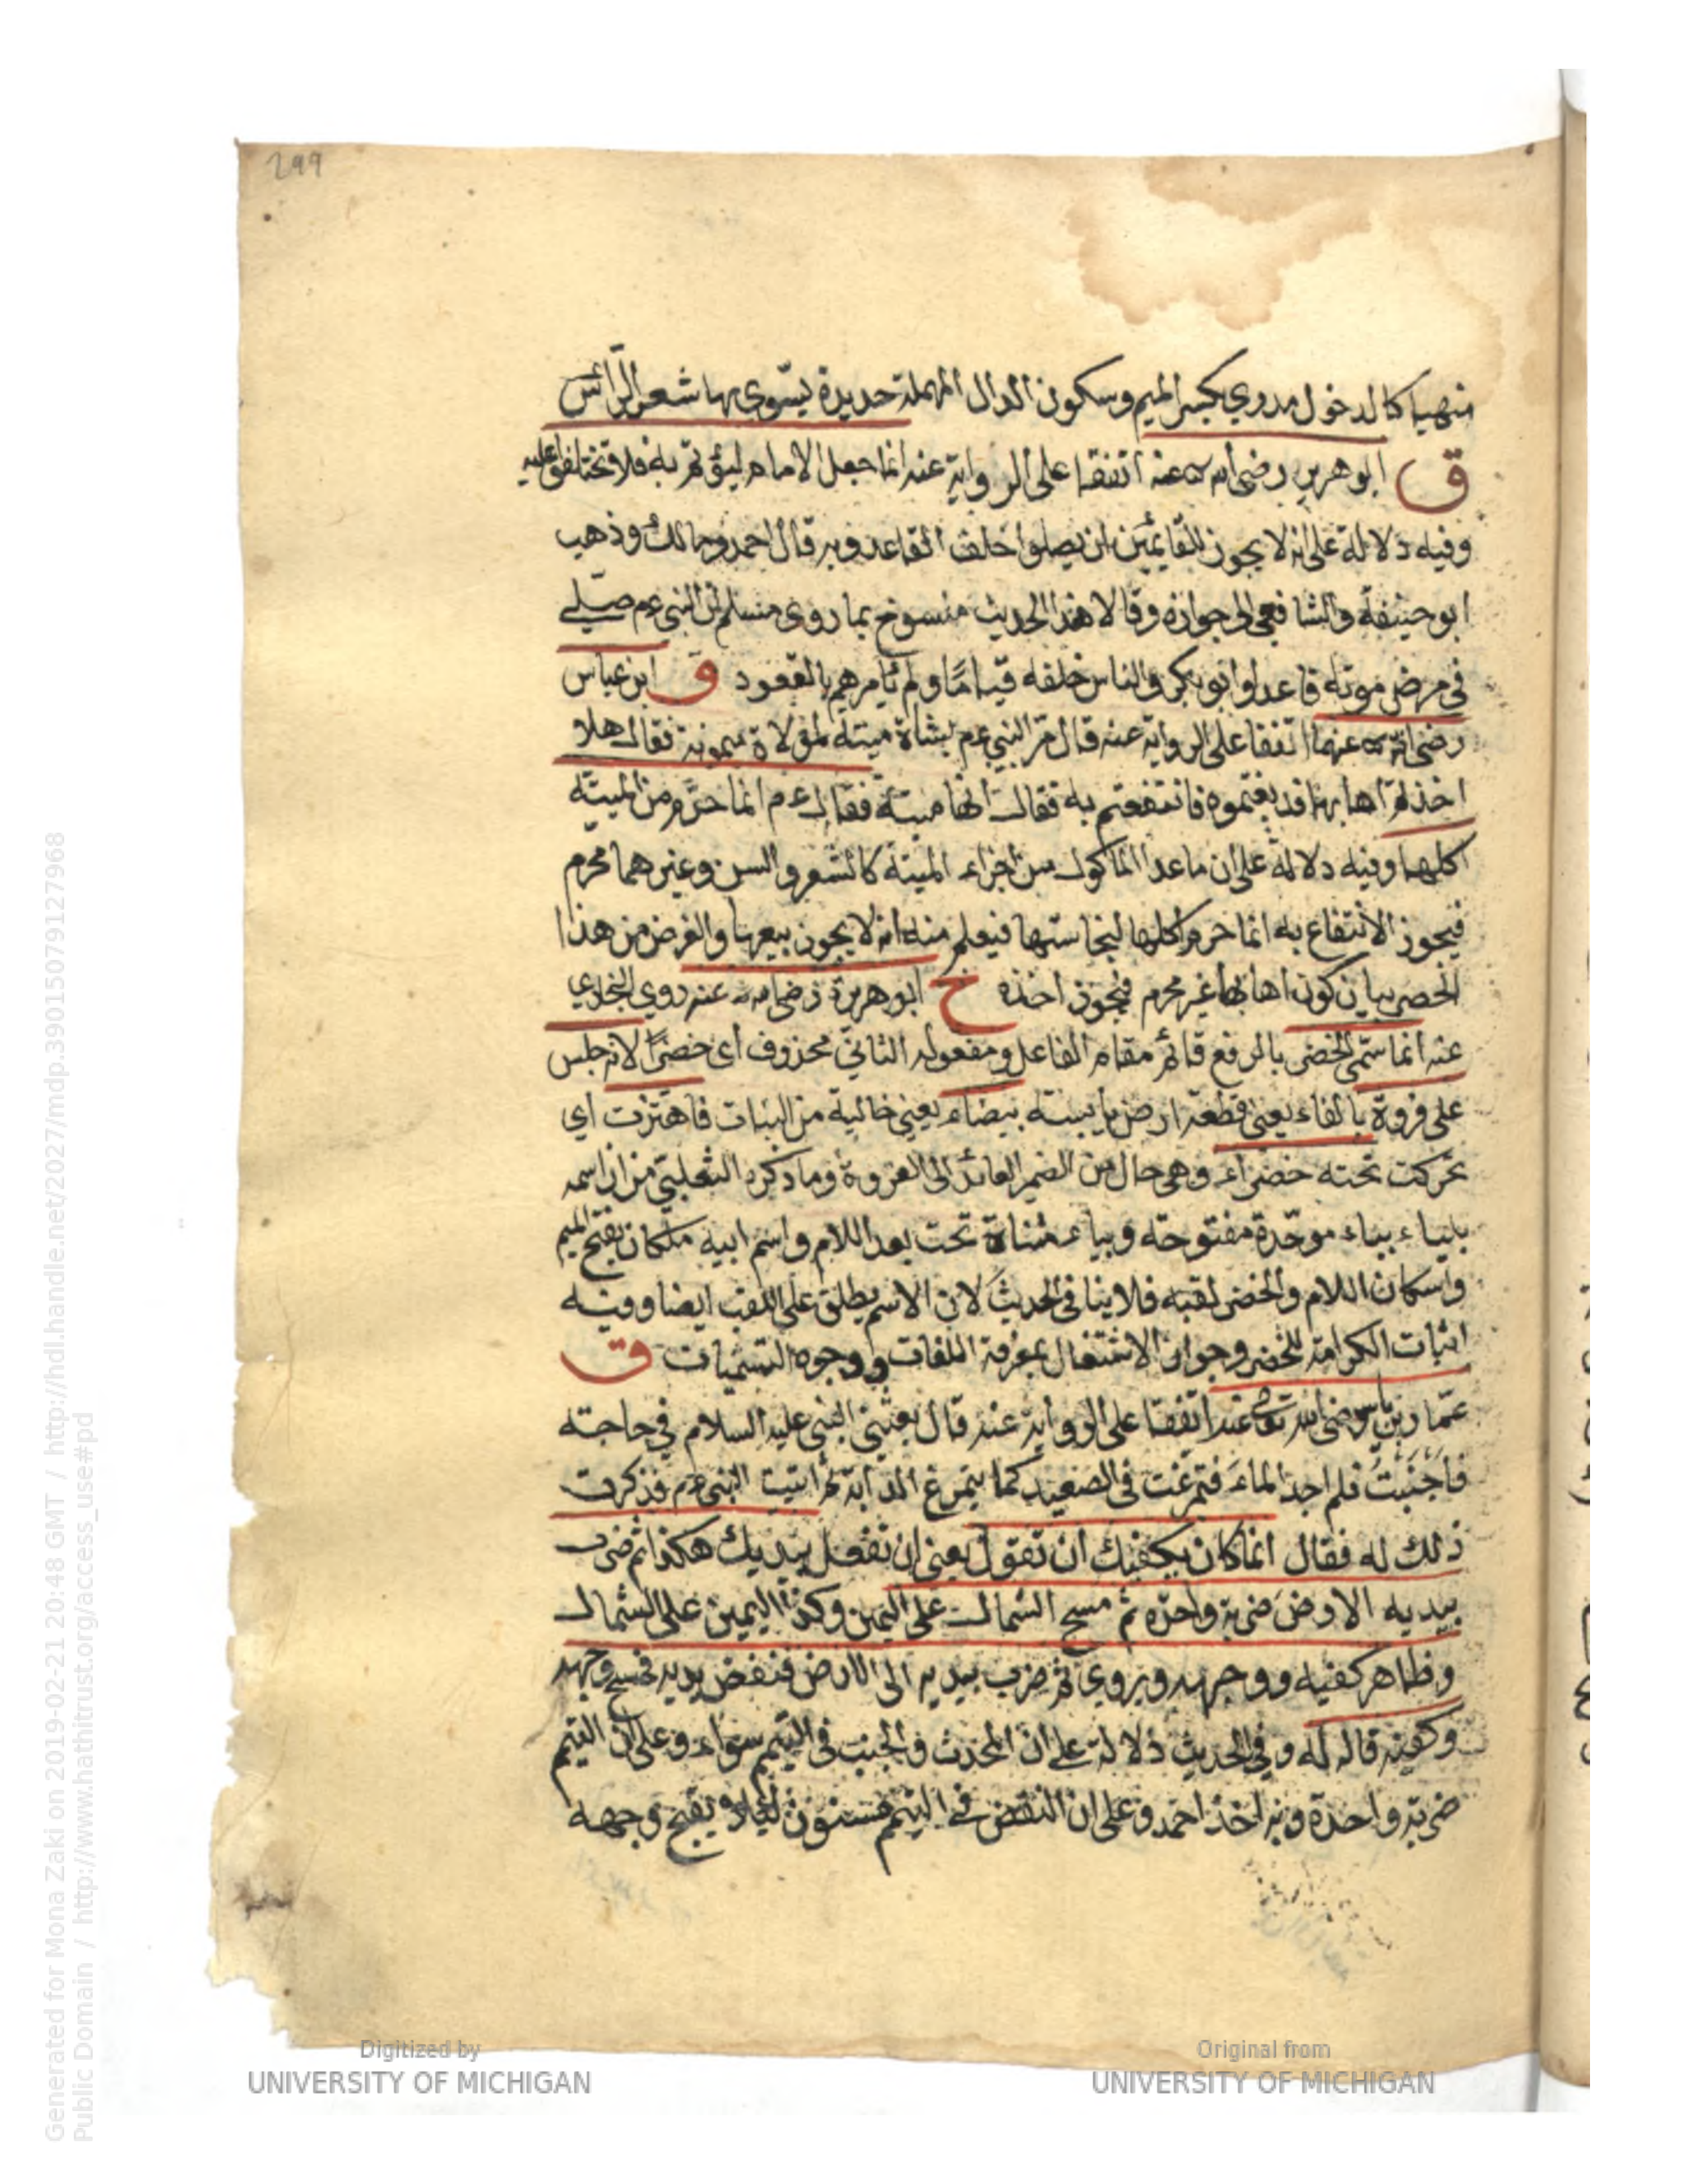 299
منهيا كالدخول مدرى بكسر الميم وسكون الدال المهملة حديدة يسوى بها شعر الرأس
ق ابو هريرة رضى الله عنه اتفقا على الرواية عنه انما جعل الامام ليؤتم به فلا تختلفوا عليه
وفيه دلالة على انه لا يجوز للقائمين ان يصلوا خلف القاعد وبه قال احمد ومالك وذهب
ابو حنيفة والشافعى الى جوازه وقالا هذا الحديث منسوخ بما روى مسلم ان النبى عم صلى
فى مرض موته قاعدا وابو بكر والناس خلفه قياما ولم يأمرهم بالقعود ق ابن عباس
رضى الله عنهما اتفقا على الرواية عنه قال مر النبي عم بشاة ميتة لمولاة ميمونة فقال هلا
اخذتم اهابها فدبغتموه فانتفعتم به فقالت انها ميتة فقال عم انما حرم من الميتة
اكلها وفيه دلالة على ان ماعدا المأكول من اجزاء الميتة كالشعر والسن وغيرهما محرم
فيجوز الانتفاع به انما حرم اكلها لنجاستها فيعلم منه انه لا يجوز بيعها والغرض من هذا
الحصر بيان كون اهابها غير محرم فيجوز اخذه خ ابو هريرة رضى الله عنه روى البخاري
عنه انما سمى الخضر بالرفع قائم مقام الفاعل ومفعوله الثاني محذوف اى خضرًا لانه جلس
على فروة بالفاء يعنى قطعة ارض يابسة بيضاء يعنى خالية من النبات فاهتزت اي
تحركت تحته خضراء وهى حال من الضمير العائد الى الفروة وما ذكره الثعلبى من ان اسمه
بلياء بباء موحدة مفتوحة وبياء مثناة تحت بعد اللام واسم ابيه ملكان بفتح الميم
واسكان اللام والخضر لقبه فلا ينافى الحديث لان الاسم يطلق على اللقب ايضا وفيه
اثبات الكرامة للخضر وجواز الاشتغال بمعرفة اللغات ووجوه التسميات ق
عمار بن ياسر رضى الله تعالى عنه اتفقا على الرواية عنه قال بعثنى النبى عليه السلام في حاجته
فاجنبت فلم اجد الماء فتمرغت فى الصعيد كما يتمرغ الدابة ثم اتيت النبى عم فذكرت
ذلك له فقال انما كان يكفيك ان تقول يعنى ان تفعل بيديك هكذا ثم ضرب
بيديه الارض ضربة واحدة ثم مسح الشمال على اليمين وكذا اليمين على الشمال
وظاهر كفيه ووجهه ويروى ثم ضرب بيديه الى الارض فنفض يديه فمسح وجهه
وكفيه قاله له وفى الحديث دلالة على ان المحدث والجنب فى التيمم سواء وعلى ان التيمم
ضربة واحدة وبه اخذ احمد وعلى ان النفض فى التيمم مسنون لئلا يقبح وجهه
Digitized by
UNIVERSITY OF MICHIGAN
Original from
UNIVERSITY OF MICHIGAN
Generated for Mona Zaki on 2019-02-21 20:48 GMT / http://hdl.handle.net/2027/mdp.39015079127968
Public Domain / http://www.hathitrust.org/access_use#pd